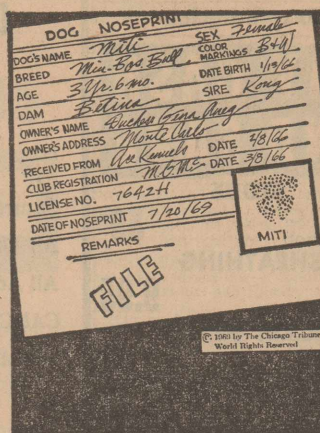 DOG NOSEPRINT
DOG'S NAME Miti SEX Female
BREED Min. Bos. Bull COLOR MARKINGS B+W
AGE 3 Yr. 6 mo. DATE BIRTH 1/13/66
DAM Betina SIRE Kong
OWNER'S NAME Duchess Gina
OWNER'S ADDRESS Monte Carlo
RECEIVED FROM Ace Kennels DATE 2/8/66
CLUB REGISTRATION DATE 3/8/66
LICENSE NO. 7642H
DATE OF NOSEPRINT 7/20/69
MITI
REMARKS
FILE
© 1969 by The Chicago Tribune
World Rights Reserved